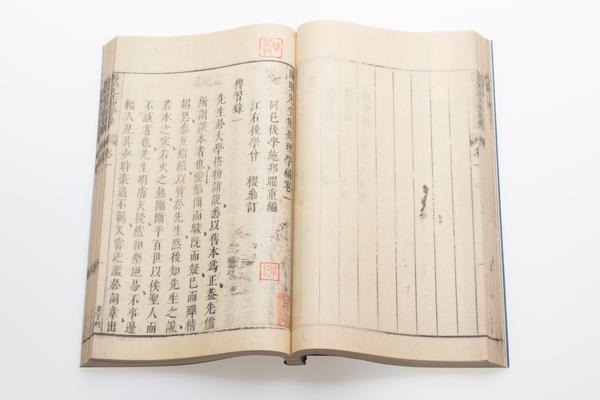 陽明先生集要理學編卷一
同邑後學施邦曜重編
江右後學曾櫻參訂
傳習錄一
先生於大學格物諸說悉以舊本爲正葢先儒
所謂誤本者也愛始聞而駭旣而疑已而殫精
竭思參互錯綜以質於先生然後知先生之說
若水之寒若火之熱斷斷乎百世以俟聖人而
不惑者也先生明睿天授然和樂坦易不事邊
幅人見其少時豪邁不羈又嘗泛濫於詞章出